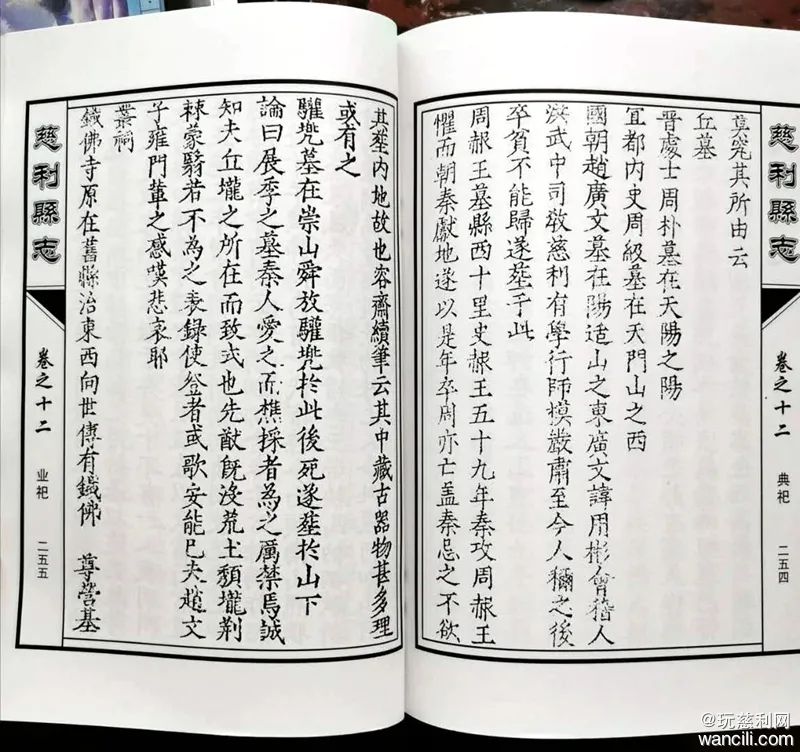 慈利縣志
卷之十二
典祀
二五四
莫究其所由云
丘墓
晉處士周朴墓在天陽之陽
宜都內史周級墓在天門山之西
國朝趙廣文墓在陽适山之東廣文諱用彬會稽人
洪武中司教慈利有學行師模嚴肅至今人稱之後
卒貧不能歸遂塟于此
周赧王墓縣西十里史赧王五十九年秦攻周赧王
懼而朝秦獻地遂以是年卒周亦亡盖秦忌之不欲
其塟內地故也容齋續筆云其中藏古器物甚多理
或有之
驩兠墓在崇山舜放驩兠於此後死遂塟於山下
論曰展季之墓秦人愛之而樵採者為之厲禁焉誠
知夫丘壠之所在而致也先猷旣沒荒土頹壠荆
棘蒙翳若不為之表錄使登者或歌安能已夫趙文
子雍門軰之感嘆悲哀耶
叢祠
鐵佛寺原在舊縣治東西向世傳有鐵佛 尊營基
慈利縣志
卷之十二
业祀
二五五
@玩慈利网
wancili.com